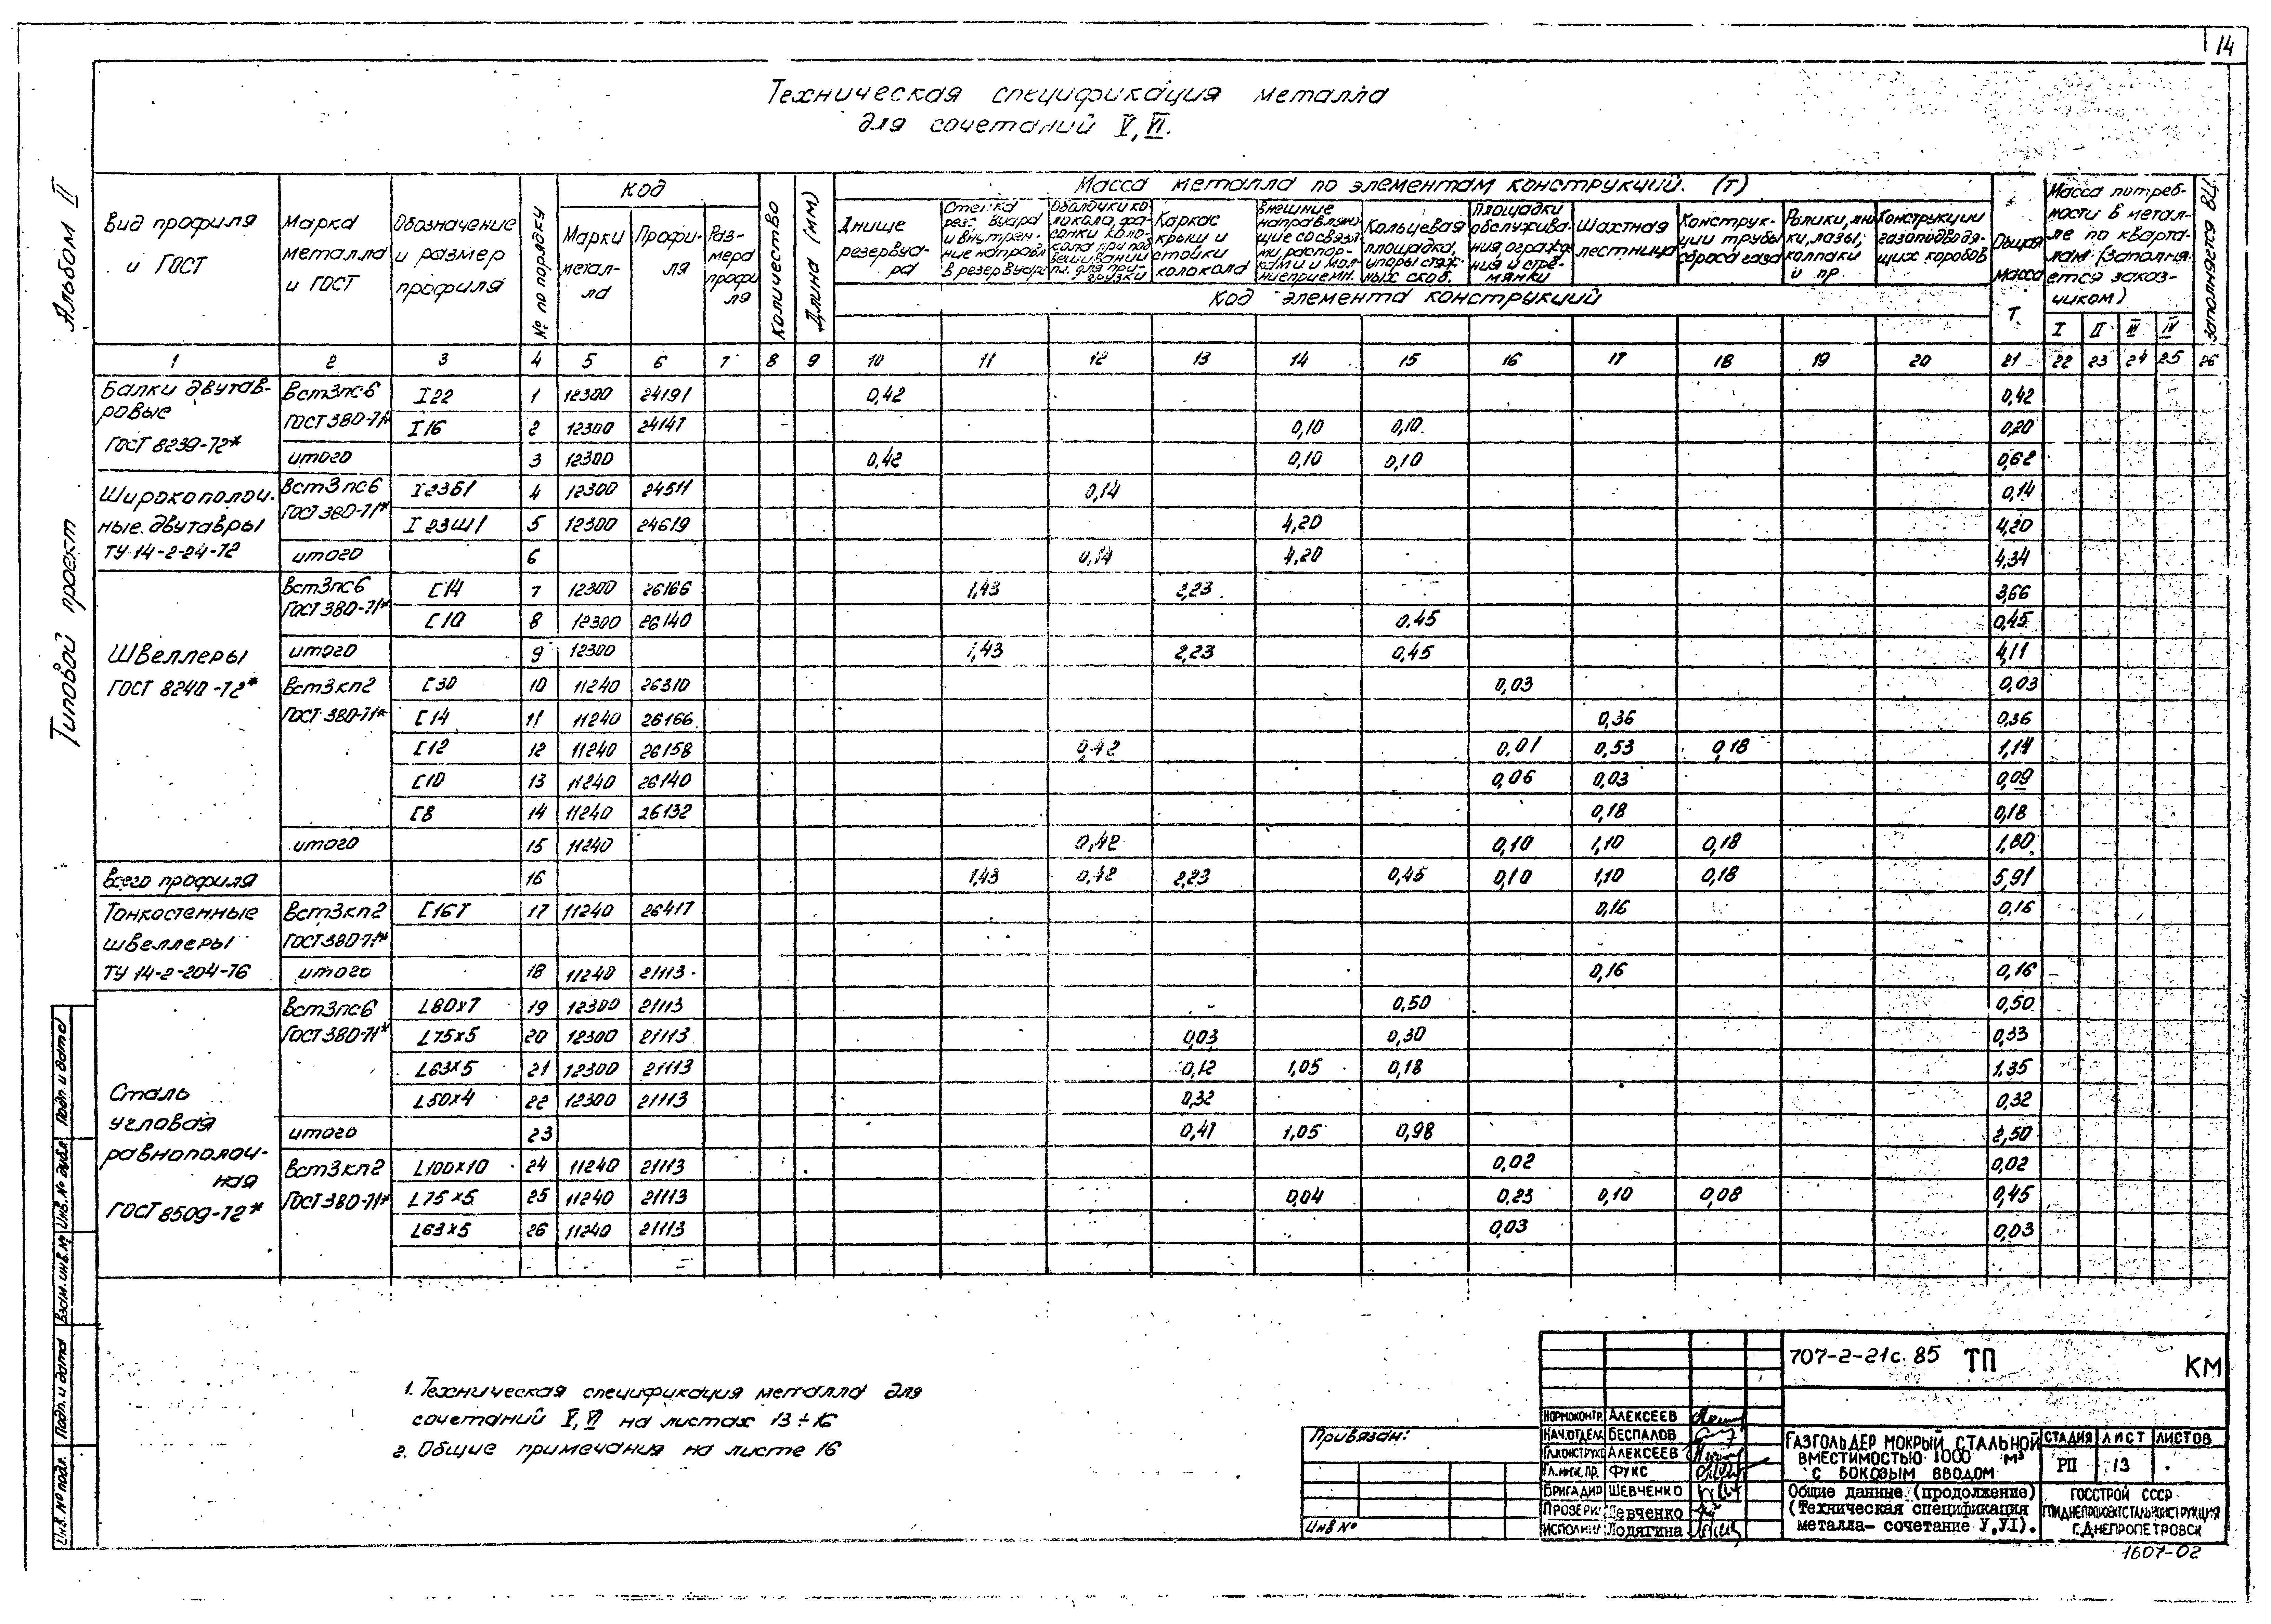 14
Техническая спецификация металла
для сочетаний V, VI.
Альбом II
Типовой проект
Вид профиля и ГОСТ
Марка металла и ГОСТ
Обозначение и размер профиля
№ по порядку
Код
Марки металла
Профиля
Размера профиля
Количество
Длина (мм)
Масса металла по элементам конструкций. (т)
Днище резервуара
Стенка рез. вуара и внутренние направл в резервуаре
Оболочки колокола, фасонки колокола при подвешивании
Каркас крыши и стойки колакола
Внешние направляющие со связями, распорками и молниеприемн.
Кольцевая площадка, упоры стяжных скоб.
Площадки обслуживания, ограждения и стремянки
Шахтная лестница
Конструкции трубы сброса газа
Ролики, люки, лазы, колпаки и пр.
Конструкции газоподводящих коробов
Код элемента конструкций
Общая масса Т
Масса потребности в металле по кварталам (заполняется заказчиком)
I II III IV
Заполняется ВЦ
1 2 3 4 5 6 7 8 9 10 11 12 13 14 15 16 17 18 19 20 21 22 23 24 25 26
Балки двутавровые ГОСТ 8239-72*
Вст3пс6 I22 1 12300 24191 0,42 0,42
ГОСТ 380-71* I16 2 12300 24147 0,10 0,10 0,20
итого 3 12300 0,42 0,10 0,10 0,62
Широкополочные двутавры ТУ 14-2-24-72
Вст3пс6 I23Б1 4 12300 24511 0,14 0,14
ГОСТ 380-71* I 23Ш1 5 12300 24619 4,20 4,20
итого 6 0,14 4,20 4,34
Швеллеры ГОСТ 8240-72*
Вст3пс6 [14 7 12300 26166 1,43 2,23 3,66
ГОСТ 380-71* [10 8 12300 26140 0,45 0,45
итого 9 12300 1,43 2,23 0,45 4,11
Вст3кп2 [30 10 11240 26310 0,03 0,03
ГОСТ 380-71* [14 11 11240 26166 0,36 0,36
[12 12 11240 26158 0,42 0,01 0,53 0,18 1,14
[10 13 11240 26140 0,06 0,03 0,09
[8 14 11240 26132 0,18 0,18
итого 15 11240 0,42 0,10 1,10 0,18 1,80
Всего профиля 16 1,43 0,42 2,23 0,45 0,10 1,10 0,18 5,91
Тонкостенные швеллеры ТУ 14-2-204-76
Вст3кп2 [16Т 17 11240 26417 0,16 0,16
ГОСТ 380-71*
итого 18 11240 21113 0,16 0,16
Сталь угловая равнополочная ГОСТ 8509-72*
Вст3пс6 L80x7 19 12300 21113 0,50 0,50
ГОСТ 380-71* L75x5 20 12300 21113 0,03 0,30 0,33
L63x5 21 12300 21113 0,12 1,05 0,18 1.35
L50x4 22 12300 21113 0,32 0,32
итого 23 0,47 1,05 0,98 2,50
Вст3кп2 L100x10 24 11240 21113 0,02 0,02
ГОСТ 380-71* L75x5 25 11240 21113 0,04 0,23 0,10 0,08 0,45
L63x5 26 11240 21113 0,03 0,03
1. Техническая спецификация металла для
сочетаний V, VI на листах 13÷16
2. Общие примечания на листе 16
Привязан:
Инв №
707-2-21с.85 ТП КМ
Нормоконтр. Алексеев
Нач.отдел. Беспалов
Гл.конструк. Алексеев
Гл.инж.пр. Фукс
Бригадир Шевченко
Провери Шевченко
Исполнил Лодягина
Газгольдер мокрый стальной
вместимостью 1000 м³
с боковым вводом
Стадия Лист Листов
РП 13
Общие данные (продолжение)
(Техническая спецификация
металла- сочетание У,УI).
Госстрой СССР
Г.Днепропетровск
1607-02
Инв. № подл. Подп. и дата Взам. инв. № Инв. № дубл. Подп. и дата